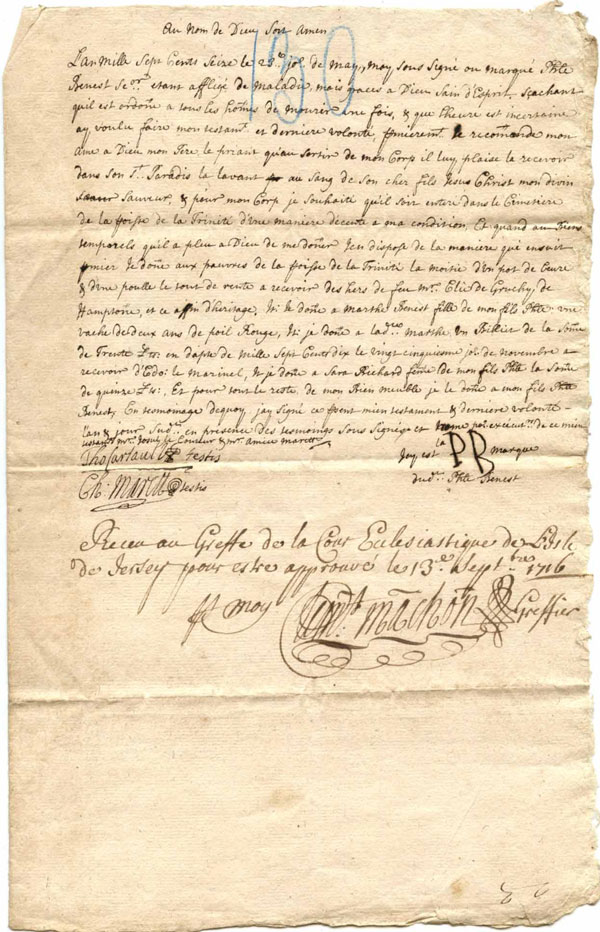 Au Nom de Dieu Soit Amen
130
L'an mille Sept Cents Seize le 23e jor de may, moy sous Signé ou marqué Phle
Benest Senr étant affligé de maladie, mais graces a Dieu Sain d'Esprit, Sçachant
qu'il est ordoñé a tous les hoṁes de mourir une fois, & que l'heure est incertaine
ay voulu faire mon testamt et derniere volonté, pmieremt je recoṁande mon
ame a Dieu mon Pere le priant qu'au Sortir de mon Corp il luy plaise la recevoir
dans son St Paradis la lavant au Sang de Son cher fils Jesus Christ mon divin
Sauveur, & pour mon Corp je Souhaite qu'il Soit enteré dans le Cimetiere
de la poisse de la Trinité d'une maniere décente a ma condition, Et quand au Biens
temporels qu'il a pleu a Dieu de me doñer J'en dispose de la maniere qui ensuit
pmier Je doñe aux pauvres de la poisse de la Trinité la moitié d'un pot de beure
& d'une poulle le tout de rente a recevoir des hers de feu Mr Elie de Gruchy, de
Hamptone, et ce affin d'heritage, It: Je doñe a Marthe Benest fille de mon fils Phle une
vache de deux ans de poil Rouge, It: je doñe a lade Marthe un Billiet de la Soṁe
de Trente Lts: en dapte de Mille Sept Cents dix le vingt cinquiesme jor de Novembre a
recevoir d'Edd: le Marinel, It je doñe a Sara Richard feṁe de mon fils Phle la Soṁe
de quinze Lts:, Et pour tout le reste de mon Bien meuble je le doñe a mon fils Phle
Benest, En tesmoinage dequoy, jay Signé ce pñent mien testament & derniere volonté
l'an & jour Sudt, en présence des tesmoings Sous Signés et noṁe por executrs de ce mien
testamt Mrs Josué le Couteur & Mr Amice Marett
Tho Sartaul testis
Ch: Marett testis
Icy est la PB marque
dudt Phle Benest
Receu au Greffe de la Cour Eclesiastique de L'Isle
de Jersey pour estre approuvé le 13e Septbre 1716
P moy Machon Greffier